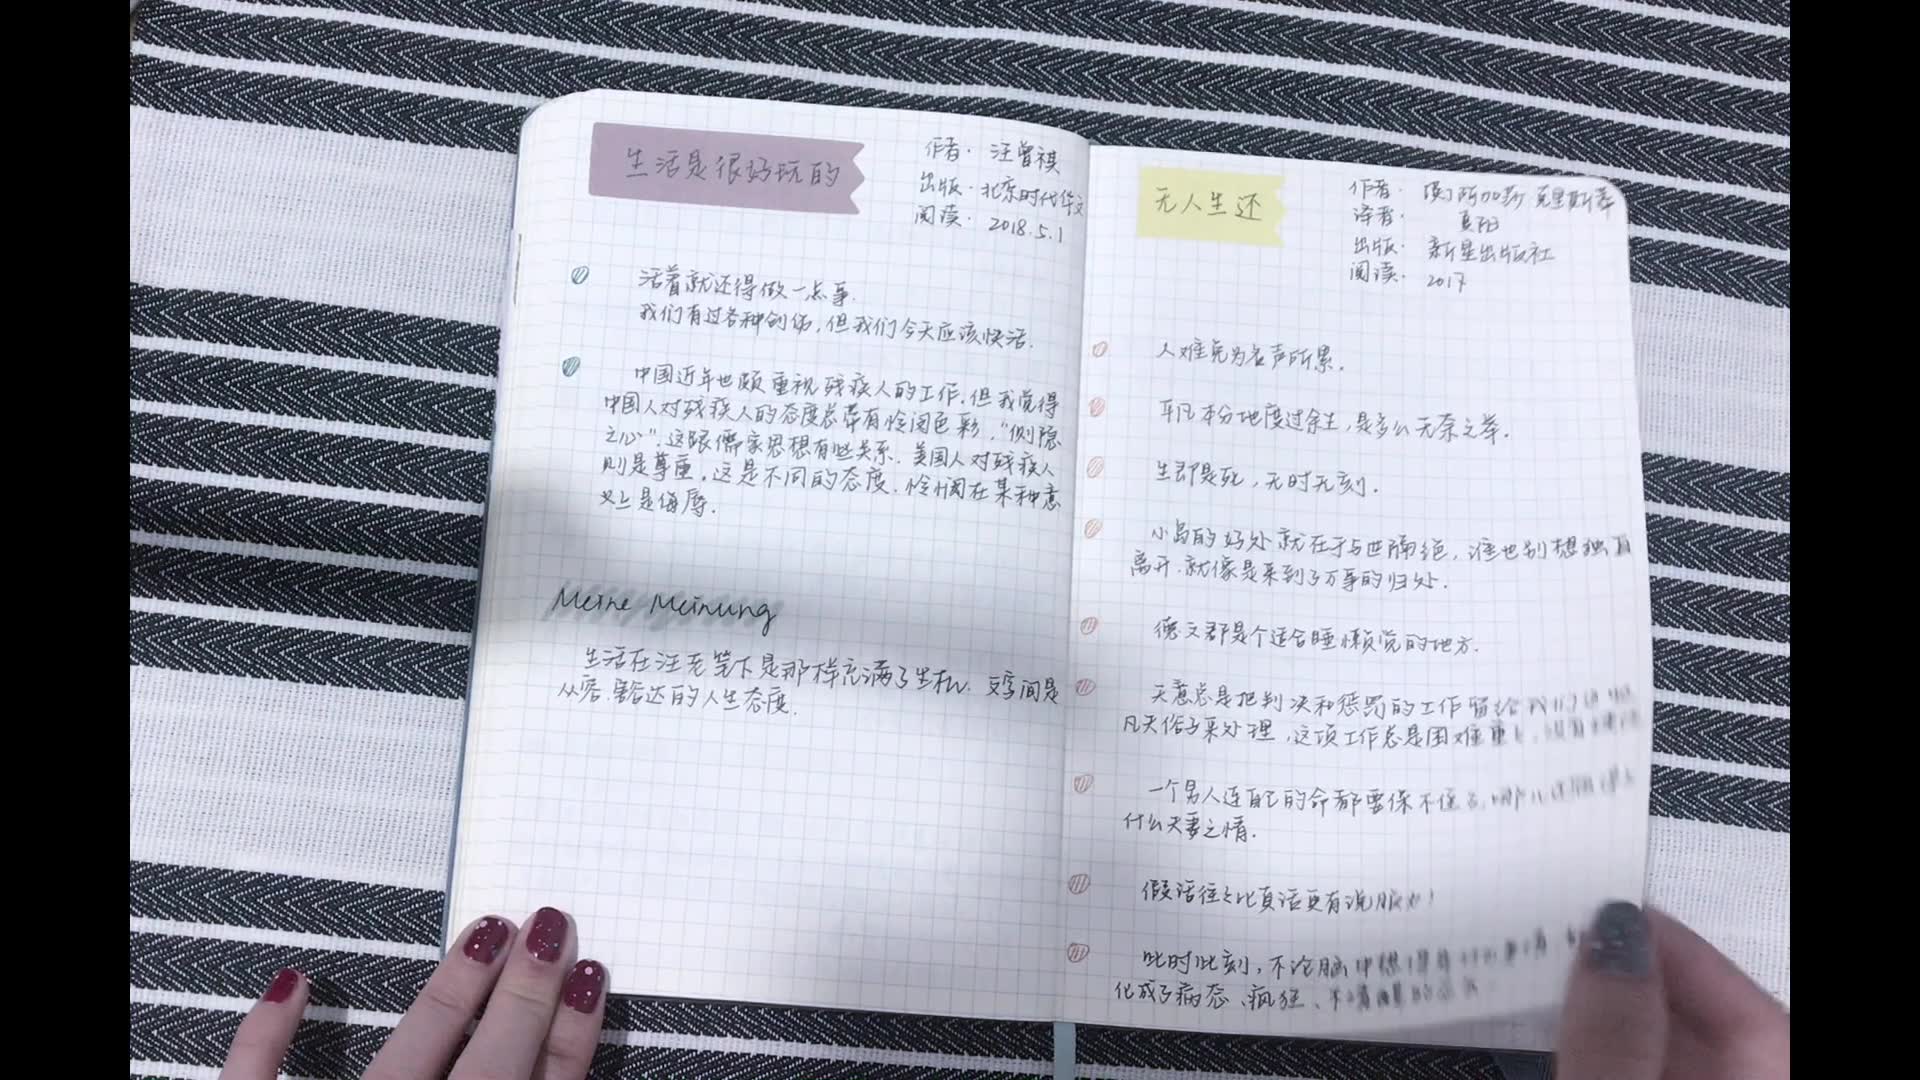 生活是很好玩的
作者: 汪曾祺
出版: 北京时代华文
阅读: 2018.5.1
活着就还得做一点事.
我们有过各种创伤,但我们今天应该快活.
中国近年也颇重视残疾人的工作.但我觉得
中国人对残疾人的态度总带有怜闵色彩,"恻隐
之心".这跟儒家思想有些关系.美国人对残疾人
则是尊重.这是不同的态度.怜悯在某种意
义上是侮辱.
Meine Meinung
生活在汪老笔下是那样充满了生机.文字间是
从容.豁达的人生态度.
无人生还
作者: [英]阿加莎 克里斯蒂
译者: 夏阳
出版: 新星出版社
阅读: 2017
人难免为名声所累.
平凡本分地度过余生,是多么无奈之举.
生即是死,无时无刻.
小岛的好处就在于与世隔绝,谁也别想独自
离开.就像是来到了万事的归处.
德文郡是个适合睡懒觉的地方.
天意总是把判决和惩罚的工作留给我们这些
凡夫俗子来处理,这项工作总是困难重重,没有
一个男人连自己的命都要保不住了,哪儿还顾得上
什么夫妻之情.
假话往往比真话更有说服力!
此时此刻,不论脑中想
化成了病态、疯狂、